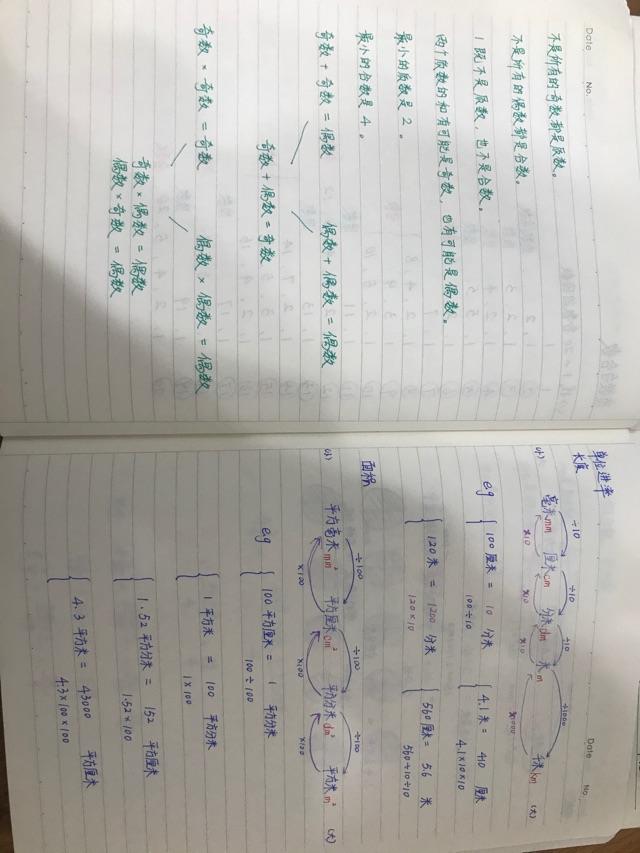 Date No.
不是所有的奇数都是质数。
不是所有的偶数都是合数。
1 既不是质数，也不是合数。
两个质数的和有可能是奇数，也有可能是偶数。
最小的质数是 2 。
最小的合数是 4 。
奇数 + 奇数 = 偶数 偶数 + 偶数 = 偶数
奇数 + 偶数 = 奇数
奇数 × 奇数 = 奇数 偶数 × 偶数 = 偶数
奇数 × 偶数 = 偶数
偶数 × 奇数 = 偶数
Date No.
单位进率
长度
÷10 ÷10 ÷10 ÷1000
(小) 毫米mm 厘米cm 分米dm 米m 千米km (大)
×10 ×10 ×10 ×1000
eg 100 厘米 = 10 分米 4.1 米 = 410 厘米
100÷10 4.1×10×10
120 米 = 1200 分米 560 厘米 = 5.6 米
120×10 560÷10÷10
面积
÷100 ÷100 ÷100
(小) 平方毫米mm² 平方厘米cm² 平方分米dm² 平方米m² (大)
×100 ×100 ×100
eg 100 平方厘米 = 1 平方分米
100÷100
1 平方米 = 100 平方分米
1×100
1.52 平方分米 = 152 平方厘米
1.52×100
4.3 平方米 = 43000 平方厘米
4.3×100×100